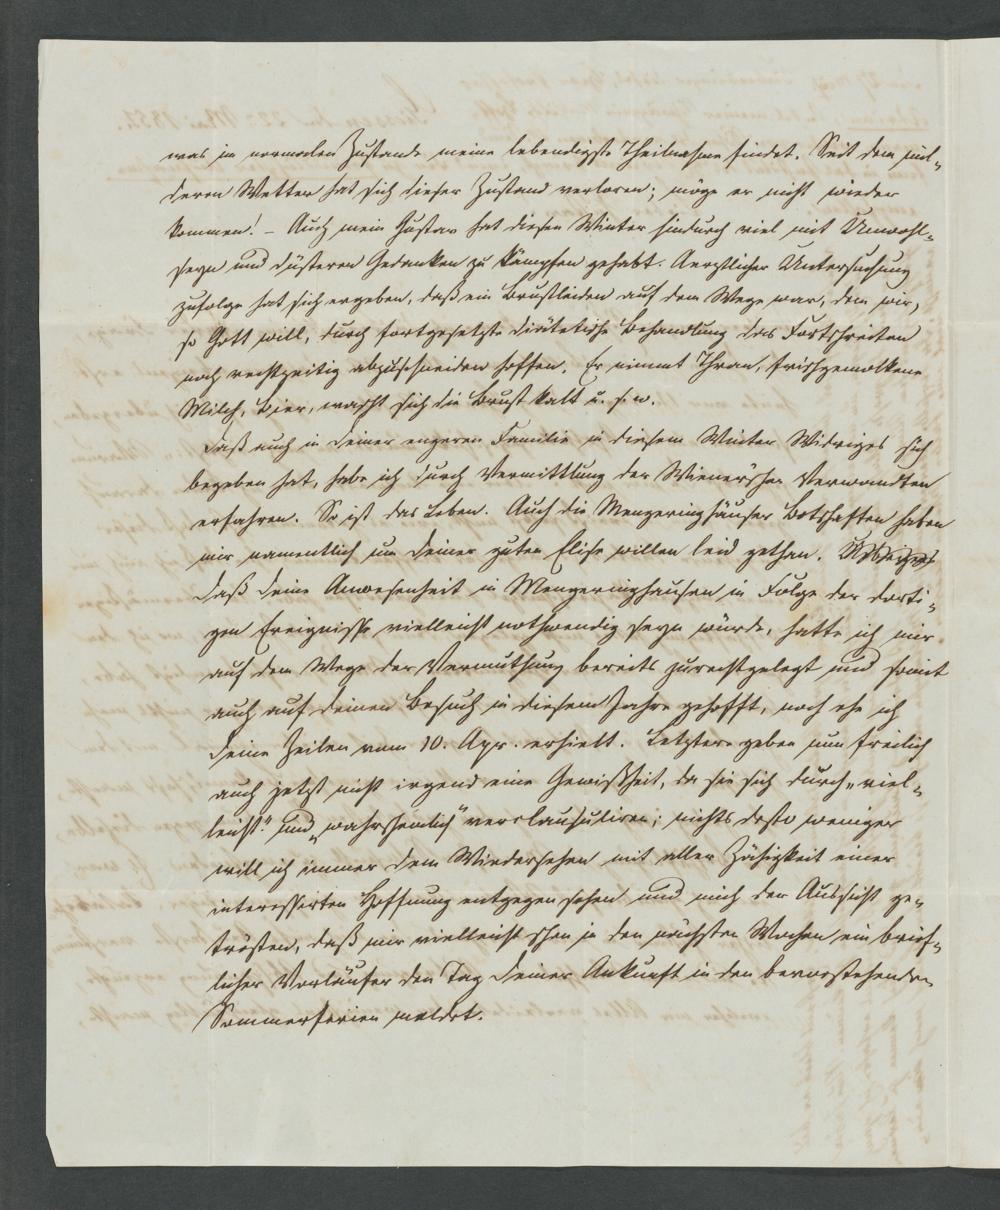 was im normalen Zustande meine lebendigste Theilnahme findet. Seit dem mil-
dern Wetter hat sich dieser Zustand verloren; möge er nicht wieder
kommen! – Auch mein Gustav hat diesen Winter hindurch viel mit Unwohl-
seyn und düsteren Gedanken zu kämpfen gehabt. Aerztlicher Untersuchung
zufolge hat sich ergeben, daß ein Brustleiden auf dem Wege war, dem wir,
so Gott will, durch fortgesetzte diätetische Behandlung das Fortschreiten
noch rechtzeitig abzuschneiden hoffen. Er nimmt Thran, frischgemolkene
Milch, Bier, wascht sich die Brust kalt u. s. w.
Daß auch in Deiner engeren Familie in diesem Winter Widriges sich
begeben hat, habe ich durch Vermittlung der Wiener'schen Verwandten
erfahren. So ist das Leben. Auch die Mengeringhäuser Botschaften haben
mir namentlich um Deiner guten Elise willen leid gethan.
Daß Deine Anwesenheit in Mengeringhausen in Folge der dorti-
gen Ereignisse vielleicht nothwendig seyn würde, hatte ich mir
auf dem Wege der Vermuthung bereits zurechtgelegt und somit
auch auf Deinen Besuch in diesem Jahre gehofft, noch ehe ich
Deine Zeilen vom 10. Apr. erhielt. Letztere geben nun freilich
auch jetzt nicht irgend eine Gewißheit, da sie sich durch „viel-
leicht" und „wahrscheinlich" verclausuliren; nichts desto weniger
will ich immer dem Wiedersehen mit aller Zähigkeit einer
interessirten Hoffnung entgegen sehen und mich der Aussicht ge-
trösten, daß mir vielleicht schon in den nächsten Wochen ein brief-
licher Vorläufer den Tag Deiner Ankunft in den bevorstehenden
Sommerferien meldet.